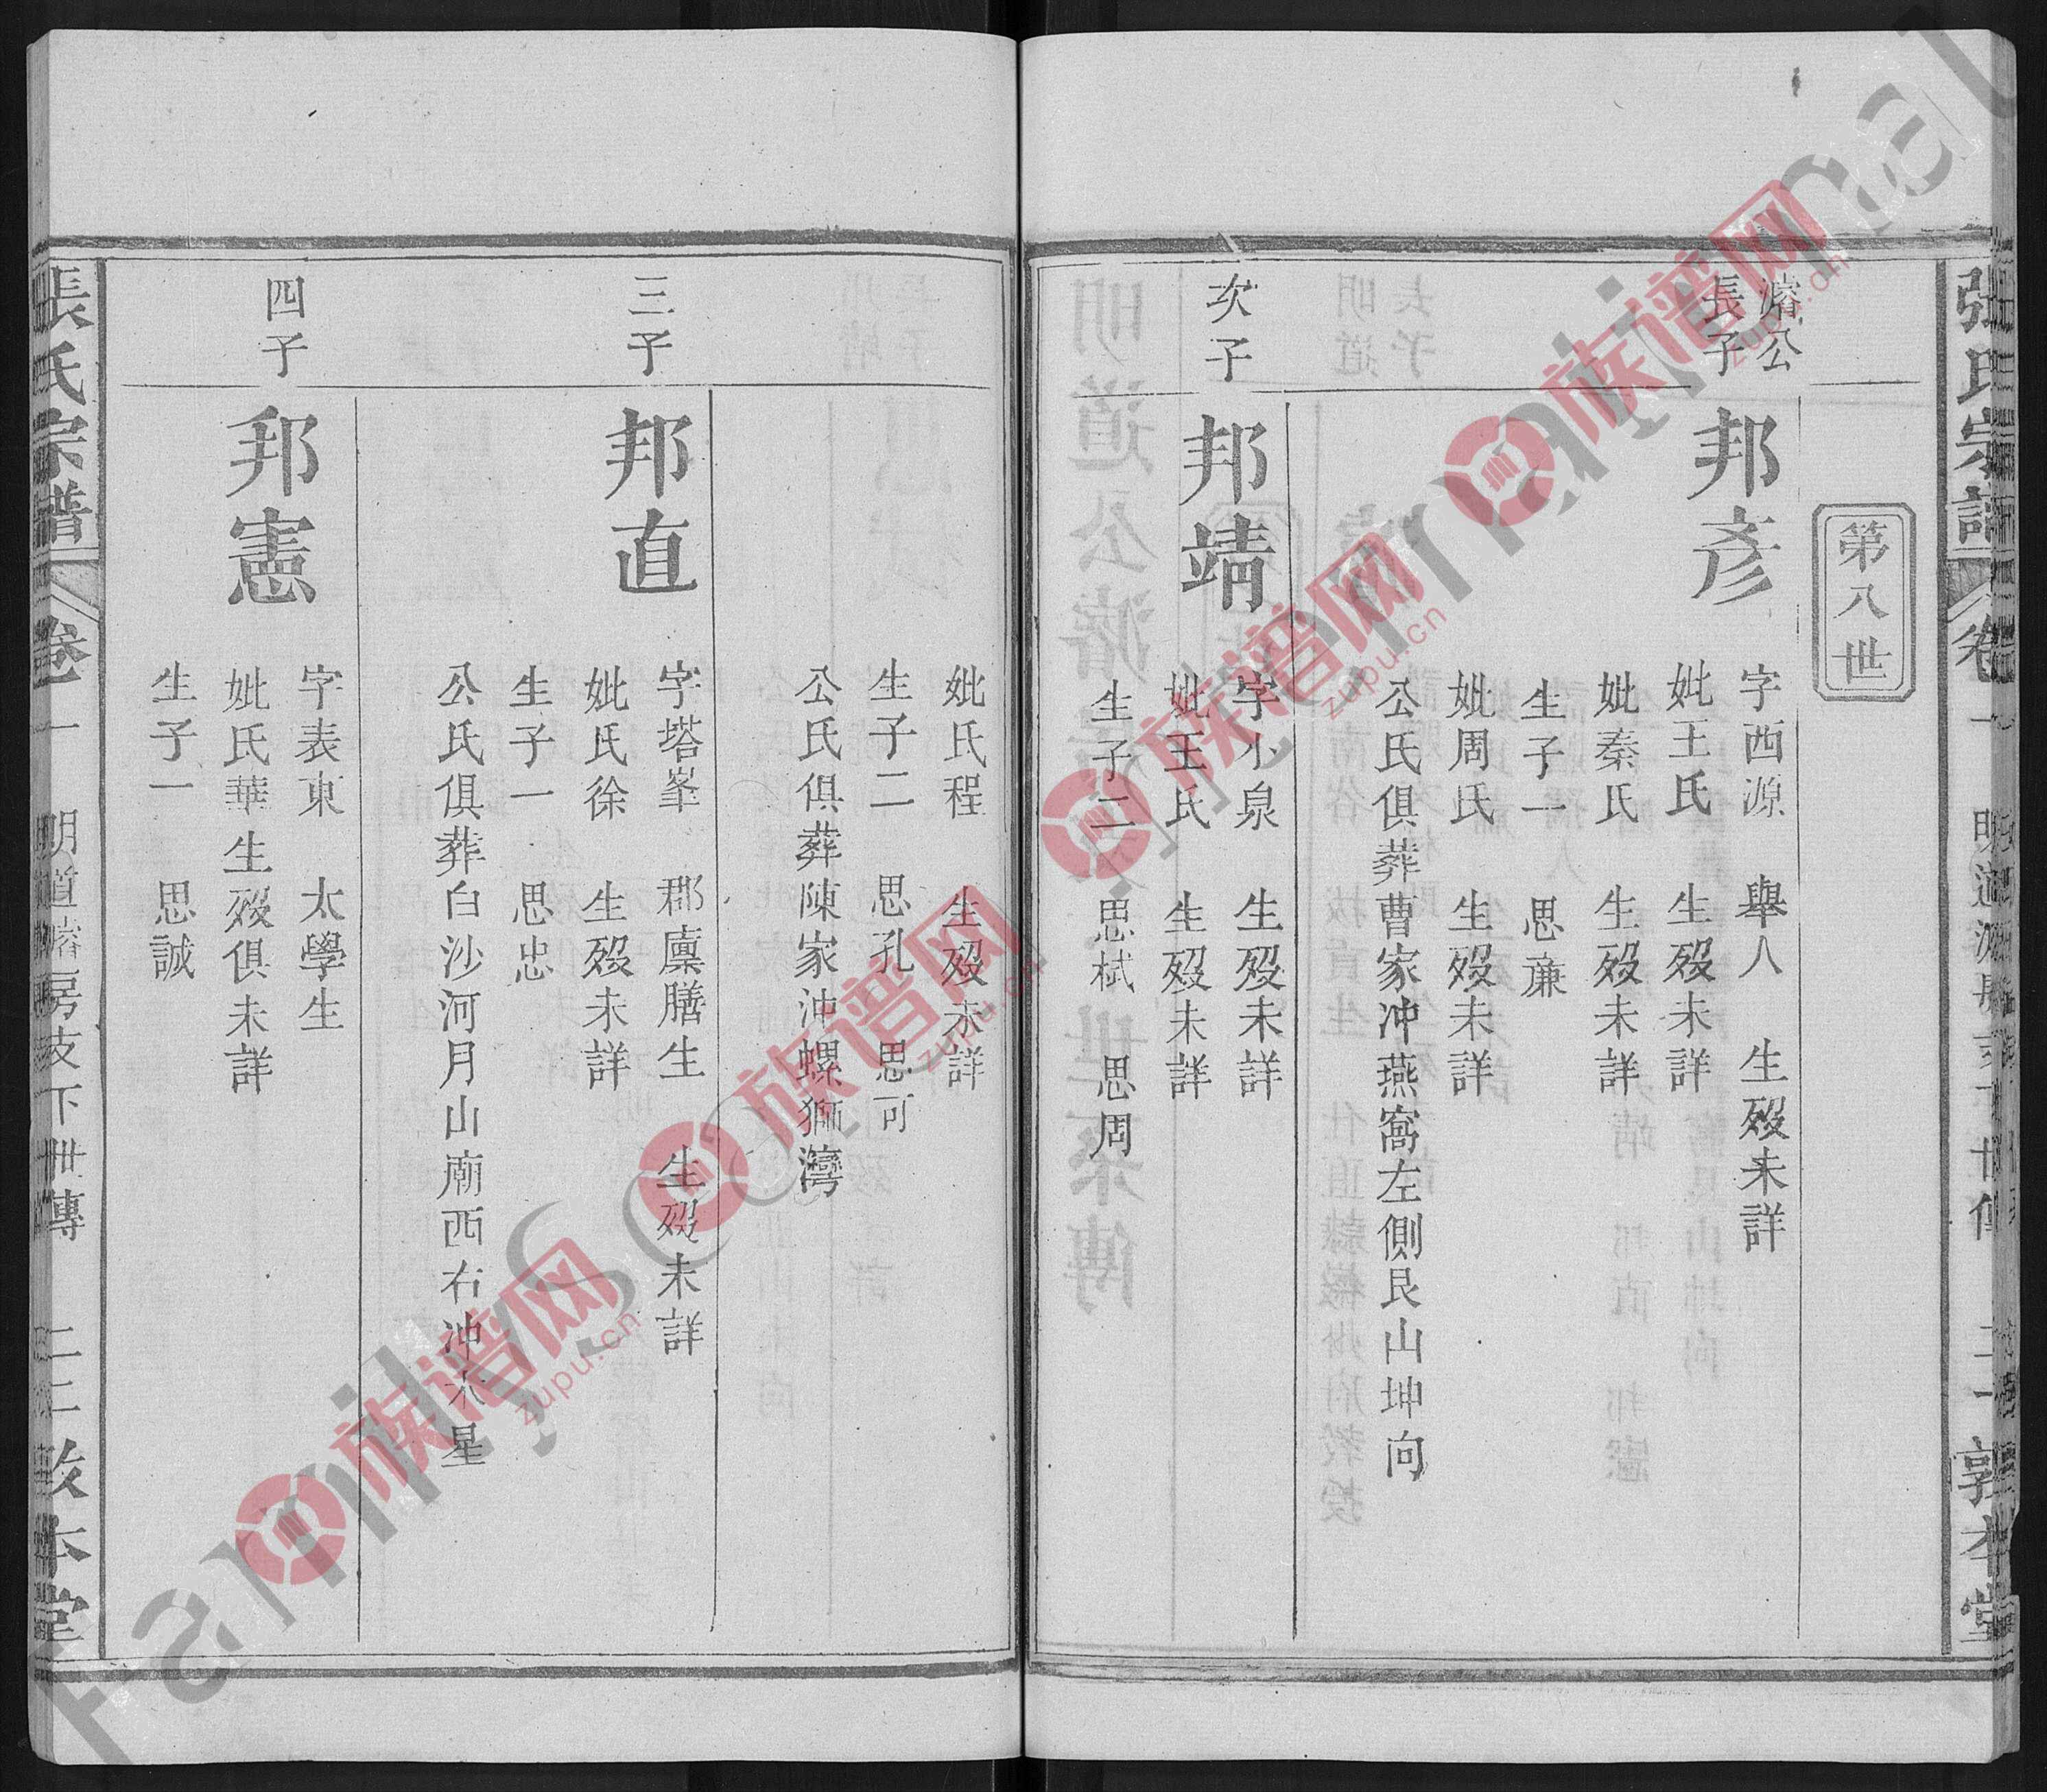 第八世
濬公
長子
邦彥
字西源 舉人 生歿未詳
妣王氏 生歿未詳
妣秦氏 生歿未詳
生子一 思亷
妣周氏 生歿未詳
公氏俱葬曹家冲燕窩左側艮山坤向
次子
邦靖
字小泉 生歿未詳
妣王氏 生歿未詳
生子二 思栻 思周
妣氏程 生歿未詳
生子二 思孔 思可
公氏俱葬陳家沖螺獅灣
三子
邦直
字塔峯 郡廩膳生 生歿未詳
妣氏徐 生歿未詳
生子一 思忠
公氏俱葬白沙河月山廟西右沖木星
四子
邦憲
字表東 太學生
妣氏華生歿俱未詳
生子一 思誠
張氏宗譜 卷一 明道濬房支下世傳 敦本堂
族谱网
zupu.cn